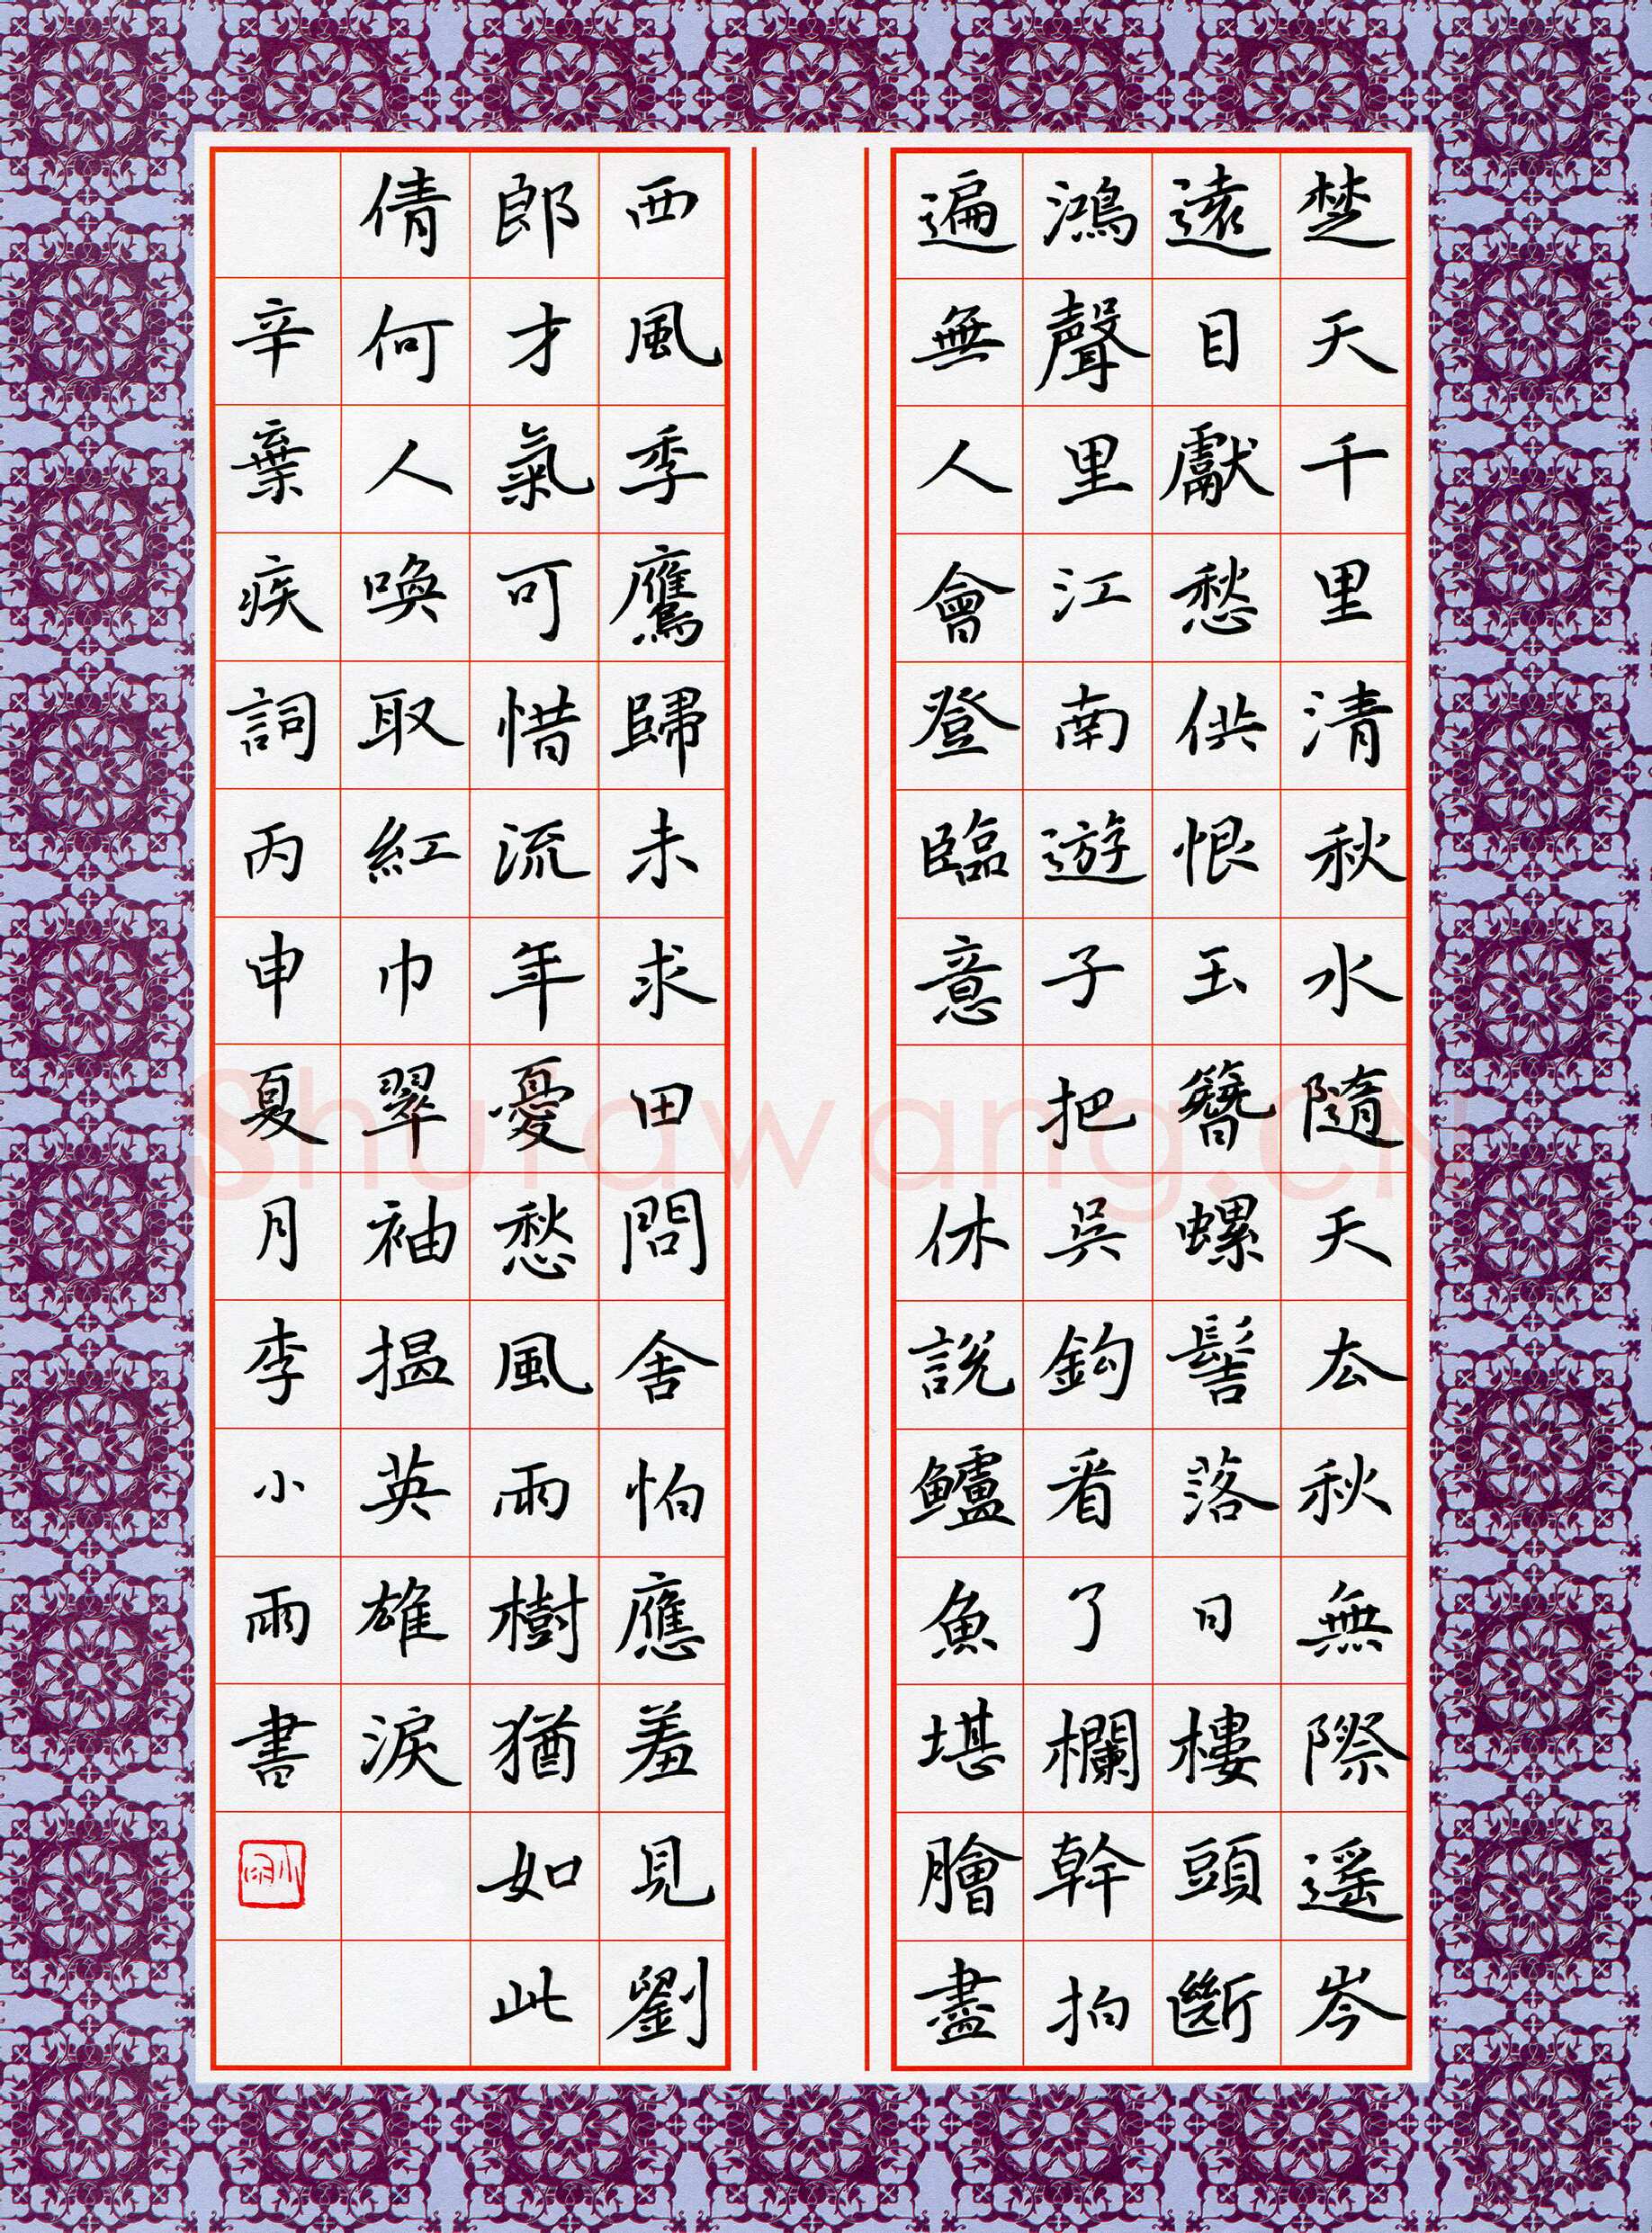 楚天千里清秋水隨天去秋無際遥岑
遠目獻愁供恨玉簪螺髻落日樓頭斷
鴻聲里江南遊子把吳鈎看了欄幹拍
遍無人會登臨意 休說鱸魚堪膾盡
西風季鷹歸未求田問舍怕應羞見劉
郎才氣可惜流年憂愁風雨樹猶如此
倩何人喚取紅巾翠袖揾英雄淚
辛棄疾詞丙申夏月李小雨書
小雨
Shufawang.CN